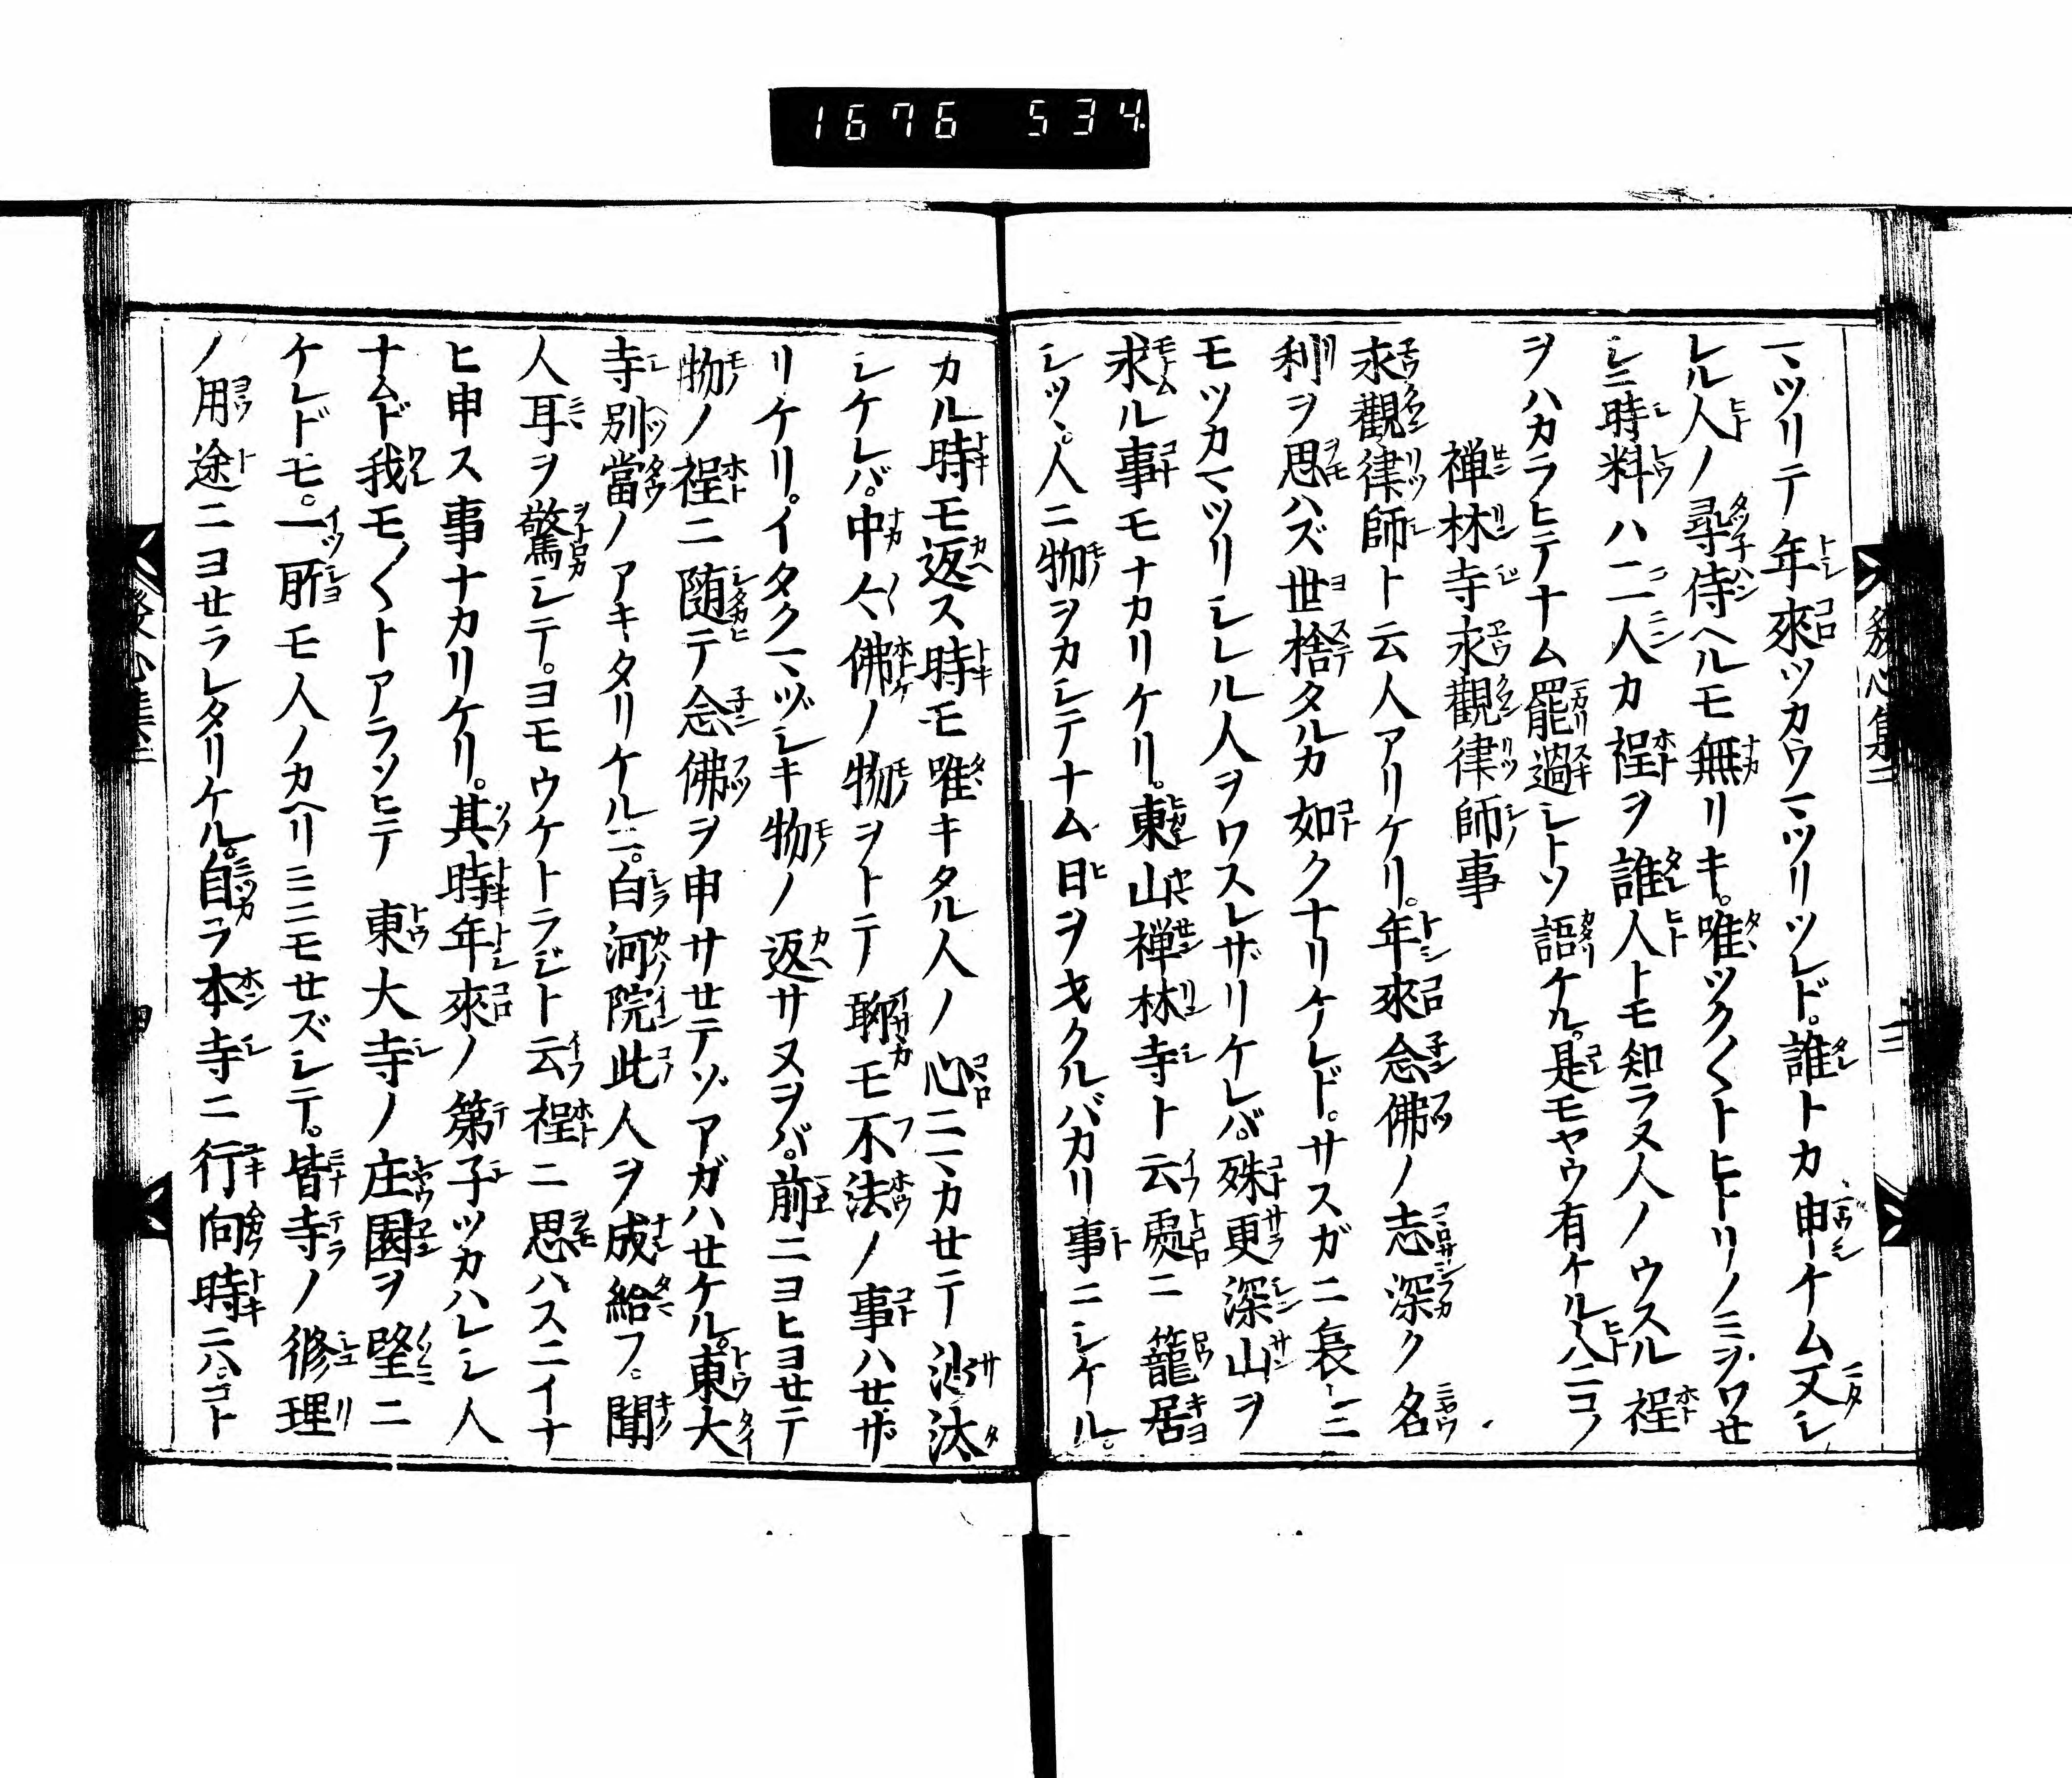 1676 534
発心集二
三
マツリテ年來ツカウマツリツレド。誰トカ申ケム又シ
レル人ノ尋侍ヘルモ無リキ。唯ツク〱トヒトリノミヲワセ
シニ時料ハ二人カ程ヲ誰人トモ知ラヌ人ノウスル程
ヲハカラヒテナム罷過シトソ語ケル。是モヤウ有ケル人ニコソ
禅林寺永觀律師事
永觀律師ト云人アリケリ。年來念佛ノ志深ク名
利ヲ思ハズ世捨タルカ如クナリケレド。サスガニ哀レニ
モツカマツリシレル人ヲワスレザリケレバ。殊更深山ヲ
求ル事モナカリケリ。東山禅林寺ト云處ニ籠居
シツヽ。人ニ物ヲカシテナム日ヲヲクルバカリ事ニシケル。
カル時モ返ス時モ唯キタル人ノ心ニマカセテ沙汰
シケレバ。中々佛ノ物ヲトテ聊モ不法ノ事ハセザ
リケリ。イタクマヅシキ物ノ返サヌヲバ。前ニヨヒヨセテ
物ノ程ニ随テ念佛ヲ申サセテゾアガハセケル。東大
寺別當ノアキタリケルニ。白河院此人ヲ成給フ。聞
人耳ヲ驚シテ。ヨモウケトラジト云程ニ思ハスニイナ
ヒ申ス事ナカリケリ。其時年來ノ第子ツカハレシ人
ナムド我モ〱トアラソヒテ東大寺ノ庄園ヲ望ニ
ケレドモ。一所モ人ノカヘリミニモセズシテ。皆寺ノ修理
ノ用途ニヨセラレタリケル。自ラ本寺ニ行向時ニハ。コト